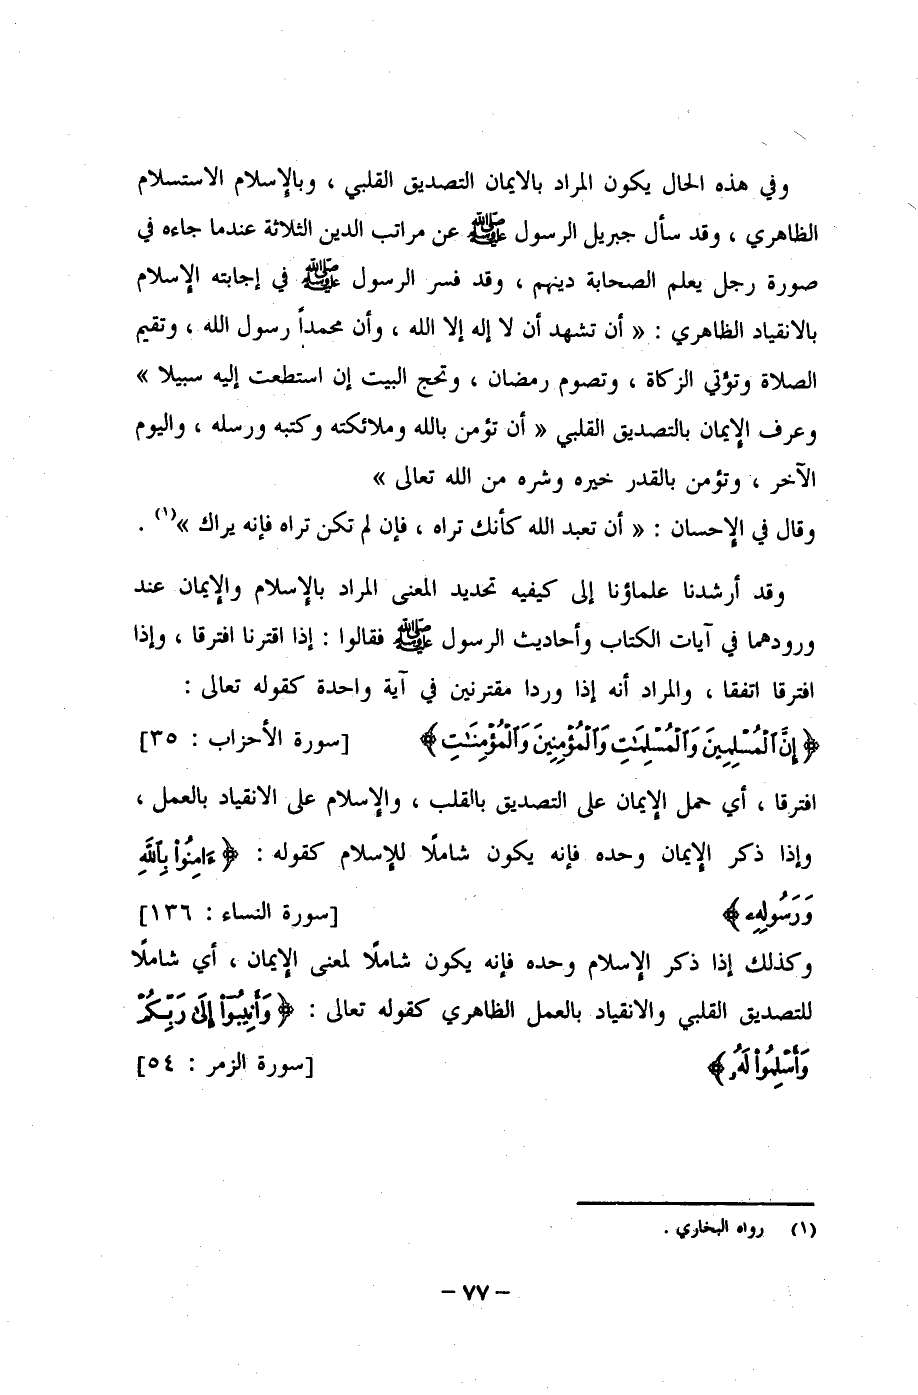 وفي هذه الحال يكون المراد بالايمان التصديق القلبي ، وبالإسلام الاستسلام
الظاهري ، وقد سأل جبريل الرسول ﷺ عن مراتب الدين الثلاثة عندما جاءه في
صورة رجل يعلم الصحابة دينهم ، وقد فسر الرسول ﷺ في إجابته الإسلام
بالانقياد الظاهري : « أن تشهد أن لا إله إلا الله ، وأن محمداً رسول الله ، وتقيم
الصلاة وتؤتي الزكاة ، وتصوم رمضان ، وتحج البيت إن استطعت إليه سبيلا »
وعرف الإيمان بالتصديق القلبي « أن تؤمن بالله وملائكته وكتبه ورسله ، واليوم
الآخر ، وتؤمن بالقدر خيره وشره من الله تعالى »
وقال في الإحسان : « أن تعبد الله كأنك تراه ، فإن لم تكن تراه فإنه يراك »(١) .
وقد أرشدنا علماؤنا إلى كيفيه تحديد المعنى المراد بالإسلام والإيمان عند
ورودهما في آيات الكتاب وأحاديث الرسول ﷺ فقالوا : إذا اقترنا افترقا ، وإذا
افترقا اتفقا ، والمراد أنه إذا وردا مقترنين في آية واحدة كقوله تعالى :
﴿ إِنَّ ٱلْمُسْلِمِينَ وَٱلْمُسْلِمَٰتِ وَٱلْمُؤْمِنِينَ وَٱلْمُؤْمِنَٰتِ ﴾ [سورة الأحزاب : ٣٥]
افترقا ، أي حمل الإيمان على التصديق بالقلب ، والإسلام على الانقياد بالعمل ،
وإذا ذكر الإيمان وحده فإنه يكون شاملًا للإسلام كقوله : ﴿ ءَامِنُوا۟ بِٱللَّهِ
وَرَسُولِهِۦ ﴾ [سورة النساء : ١٣٦]
وكذلك إذا ذكر الإسلام وحده فإنه يكون شاملًا لمعنى الإيمان ، أي شاملًا
للتصديق القلبي والانقياد بالعمل الظاهري كقوله تعالى : ﴿ وَأَنِيبُوٓا۟ إِلَىٰ رَبِّكُمْ
وَأَسْلِمُوا۟ لَهُۥ ﴾ [سورة الزمر : ٥٤]
(١) رواه البخاري .
- ٧٧ -